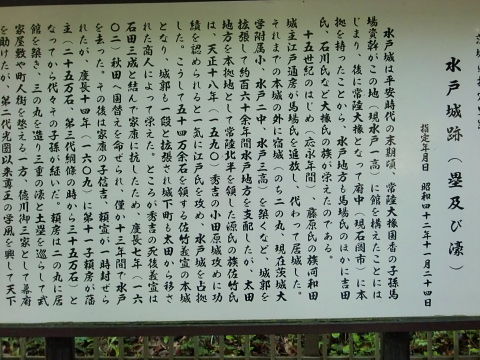 水戸城跡（塁及び濠）
指定年月日 昭和四十二年十一月二十四日
水戸城は平安時代の末期頃、常陸大掾国香の子孫馬
場資幹がこの地（現水戸一高）に館を構えたことには
じまり、後に常陸大掾となって府中（現石岡市）に本
拠を持ったことから、水戸地方も馬場氏のほかに吉田
氏、石川氏など大掾氏の族が栄えたのである。
十五世紀のはじめ（応永年間）、藤原氏の族河和田
城主江戸通房が馬場氏を追放し、代わって居城した。
それまでの本城の外に宿城（のち二の丸、現在茨城大
学附属小、水戸二中、水戸三高）を築くなど、城郭を
拡張して約百六十余年間水戸地方を支配したが、太田
地方を本拠地として常陸北半を領した源氏の族佐竹氏
は、天正十八年（一五九〇）秀吉の小田原城攻めに功
績を認められると、一気に江戸氏を攻め、水戸城を占拠
した。こうして五十四万余石を領する佐竹義宣の本城
となり、城郭も一段と拡張され城下町も太田から移さ
れた商人によって栄えた。ところが秀吉の死後義宣は
石田三成と結んで家康に抗したため、慶長七年（一六
〇二）秋田へ国替えを命ぜられ、僅か十三年間で水戸
を去った。その後は家康の子信吉、頼宣が一時封ぜら
れたが、慶長十四年（一六〇九）に第十一子頼房が藩
主（二十五万石、第三代綱條の時から三十五万石）と
なってから代々その子孫が継いだ。頼房は二の丸に居
館を築き、三の丸を造り三重の濠と土塁を巡らして武
家屋敷や町人街を整える一方、徳川御三家として幕府
を助けたが、第二代光圀以来尊王の学風を興して天下